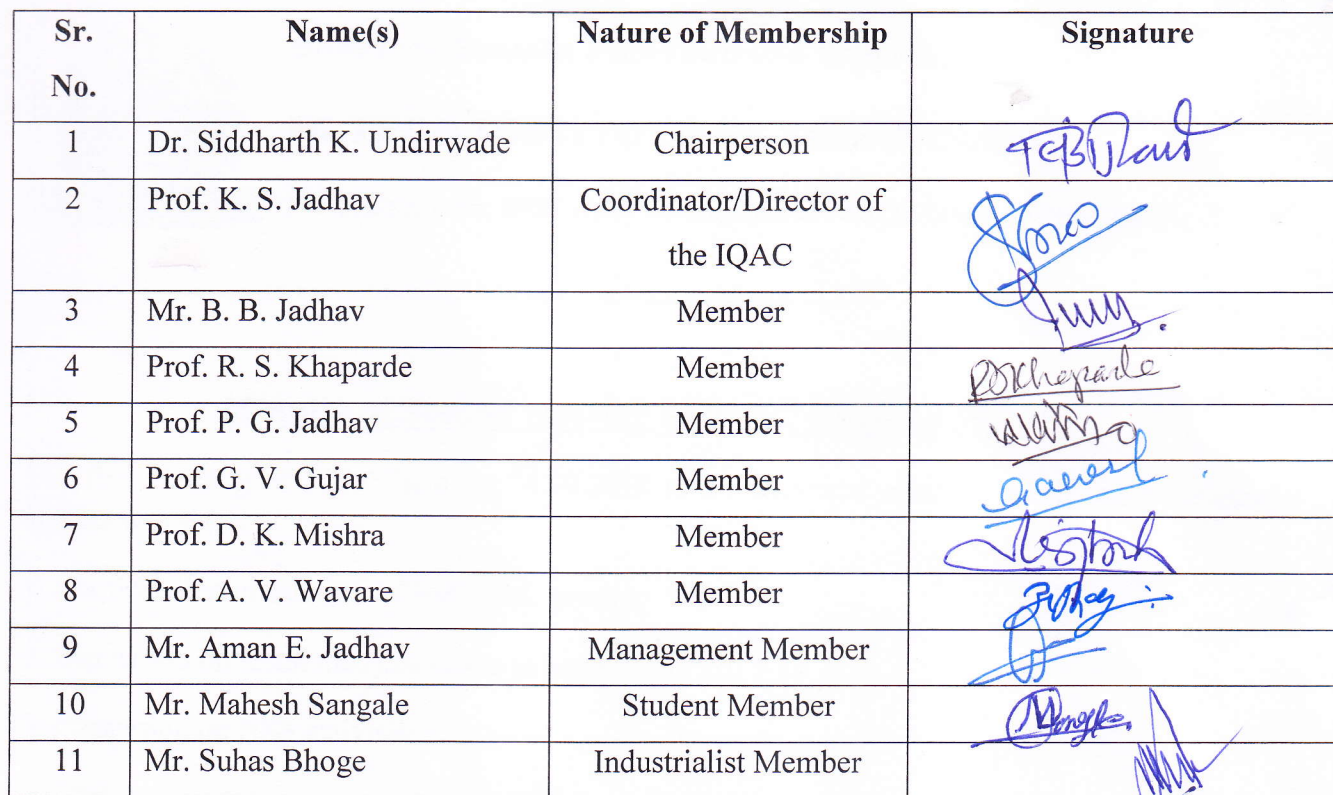 Sr. No. Name(s) Nature of Membership Signature
1 Dr. Siddharth K. Undirwade Chairperson
2 Prof. K. S. Jadhav Coordinator/Director of the IQAC
3 Mr. B. B. Jadhav Member
4 Prof. R. S. Khaparde Member RSKhaparde
5 Prof. P. G. Jadhav Member
6 Prof. G. V. Gujar Member
7 Prof. D. K. Mishra Member
8 Prof. A. V. Wavare Member
9 Mr. Aman E. Jadhav Management Member
10 Mr. Mahesh Sangale Student Member
11 Mr. Suhas Bhoge Industrialist Member